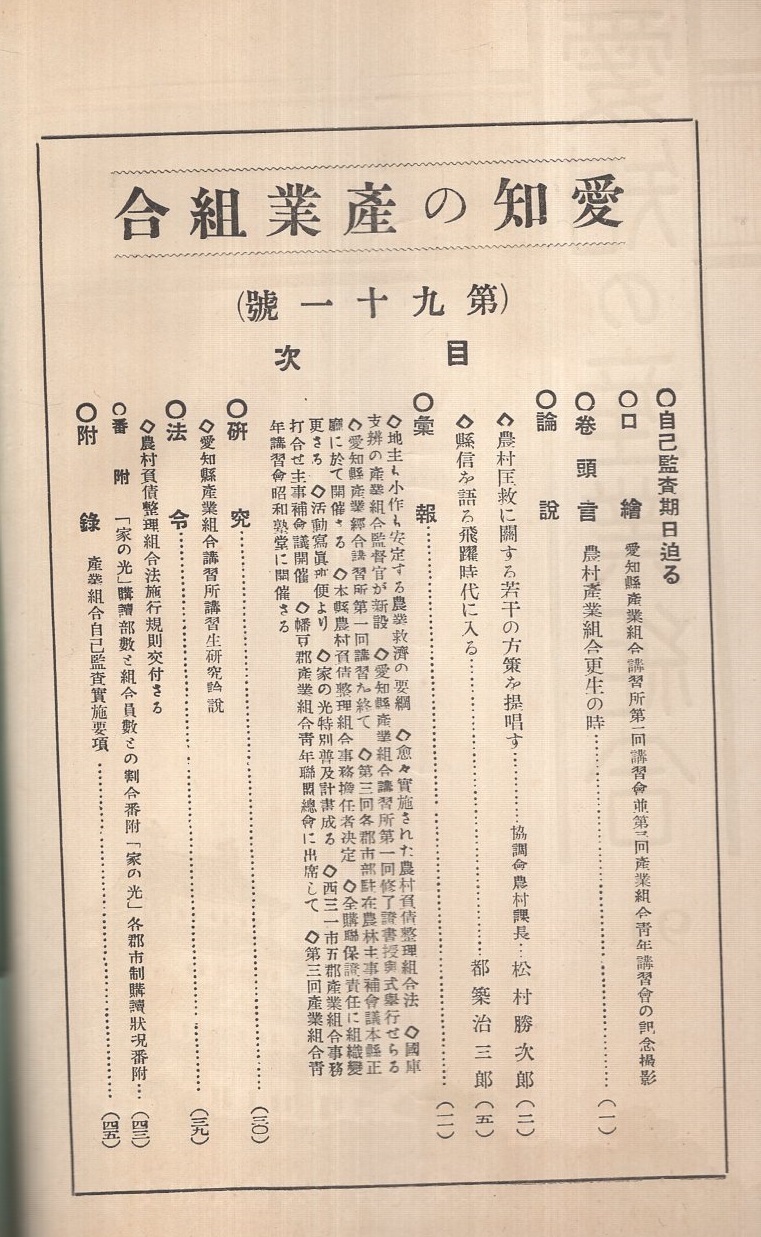 愛知の產業組合
(第九十一號)
目次
〇自己監査期日迫る
〇口繪 愛知縣產業組合講習所第一回講習會並第三回產業組合靑年講習會の記念撮影
〇卷頭言 農村產業組合更生の時……(一)
〇論說
◇農村匡救に關する若干の方策を提唱す……協調會農村課長…松村勝次郎(二)
◇縣信を語る飛躍時代に入る……都築治三郎(五)
〇彙報……(一一)
◇地主も小作も安定する農業救濟の要綱 ◇愈々實施された農村負債整理組合法 ◇國庫
支辨の產業組合監督官が新設 ◇愛知縣產業組合講習所第一回修了證書授與式擧行せらる
◇愛知縣產業組合講習所第一回講習を終て ◇第三回各郡市部駐在農林主事補會議本縣正
廳に於て開催さる ◇本縣農村負債整理組合事務擔任者決定 ◇全購聯保證責任に組織變
更さる ◇活動寫眞班便より ◇家の光特別普及計畫成る ◇西三一市五郡產業組合事務
打合せ主事補會議開催 ◇幡豆郡產業組合靑年聯盟總會に出席して ◇第三回產業組合靑
年講習會昭和塾堂に開催さる
〇硏究……(三〇)
◇愛知縣產業組合講習所講習生硏究論說
〇法令……(三九)
◇農村負債整理組合法施行規則交付さる
〇番附 「家の光」購讀部數と組合員數との割合番附「家の光」各郡市制購讀狀況番附…(四三)
〇附錄 產業組合自己監査實施要項……(四五)